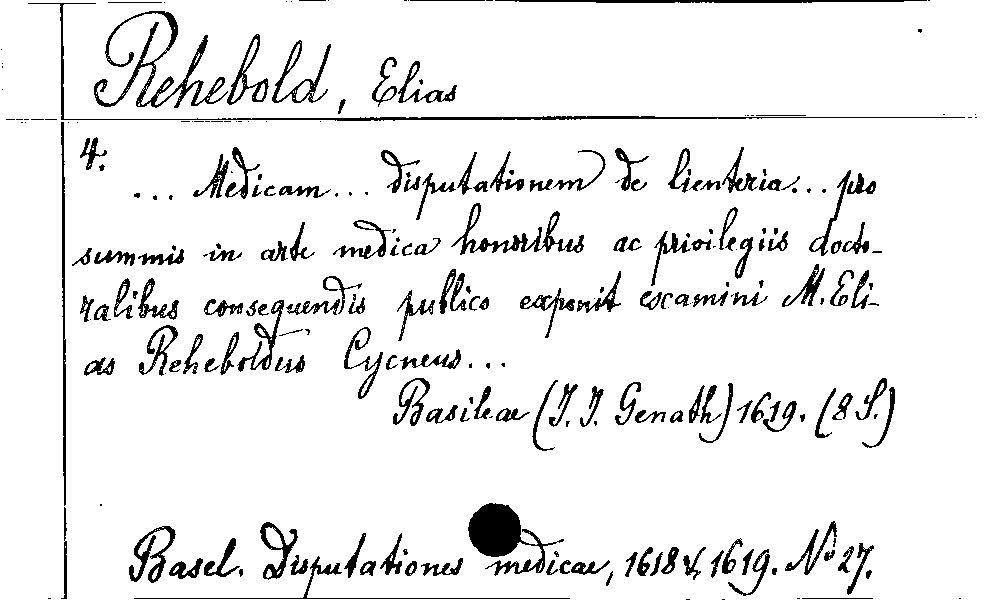 Rehebold, Elias
4.
... Medicam... disputationem de lienteria... pro
summis in arte medica honoribus ac privilegiis docto-
ralibus consequendis publico exponit examini M. Eli-
as Reheboldus Cycneus...
Basileae (J. J. Genath) 1619. (8 S.)
Basel. Disputationes medicae, 1618 & 1619. No 27.